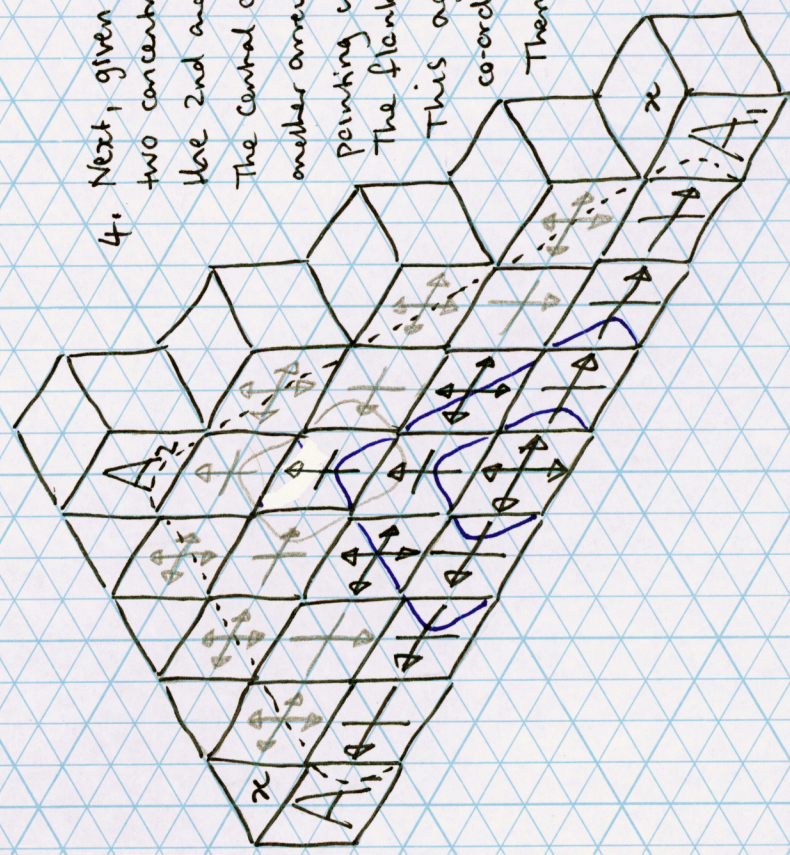 4. Next, given
two concent
the 2nd
The central
another
pointing
The flank
This
co-ord
Then
x
A1
A2
x
A